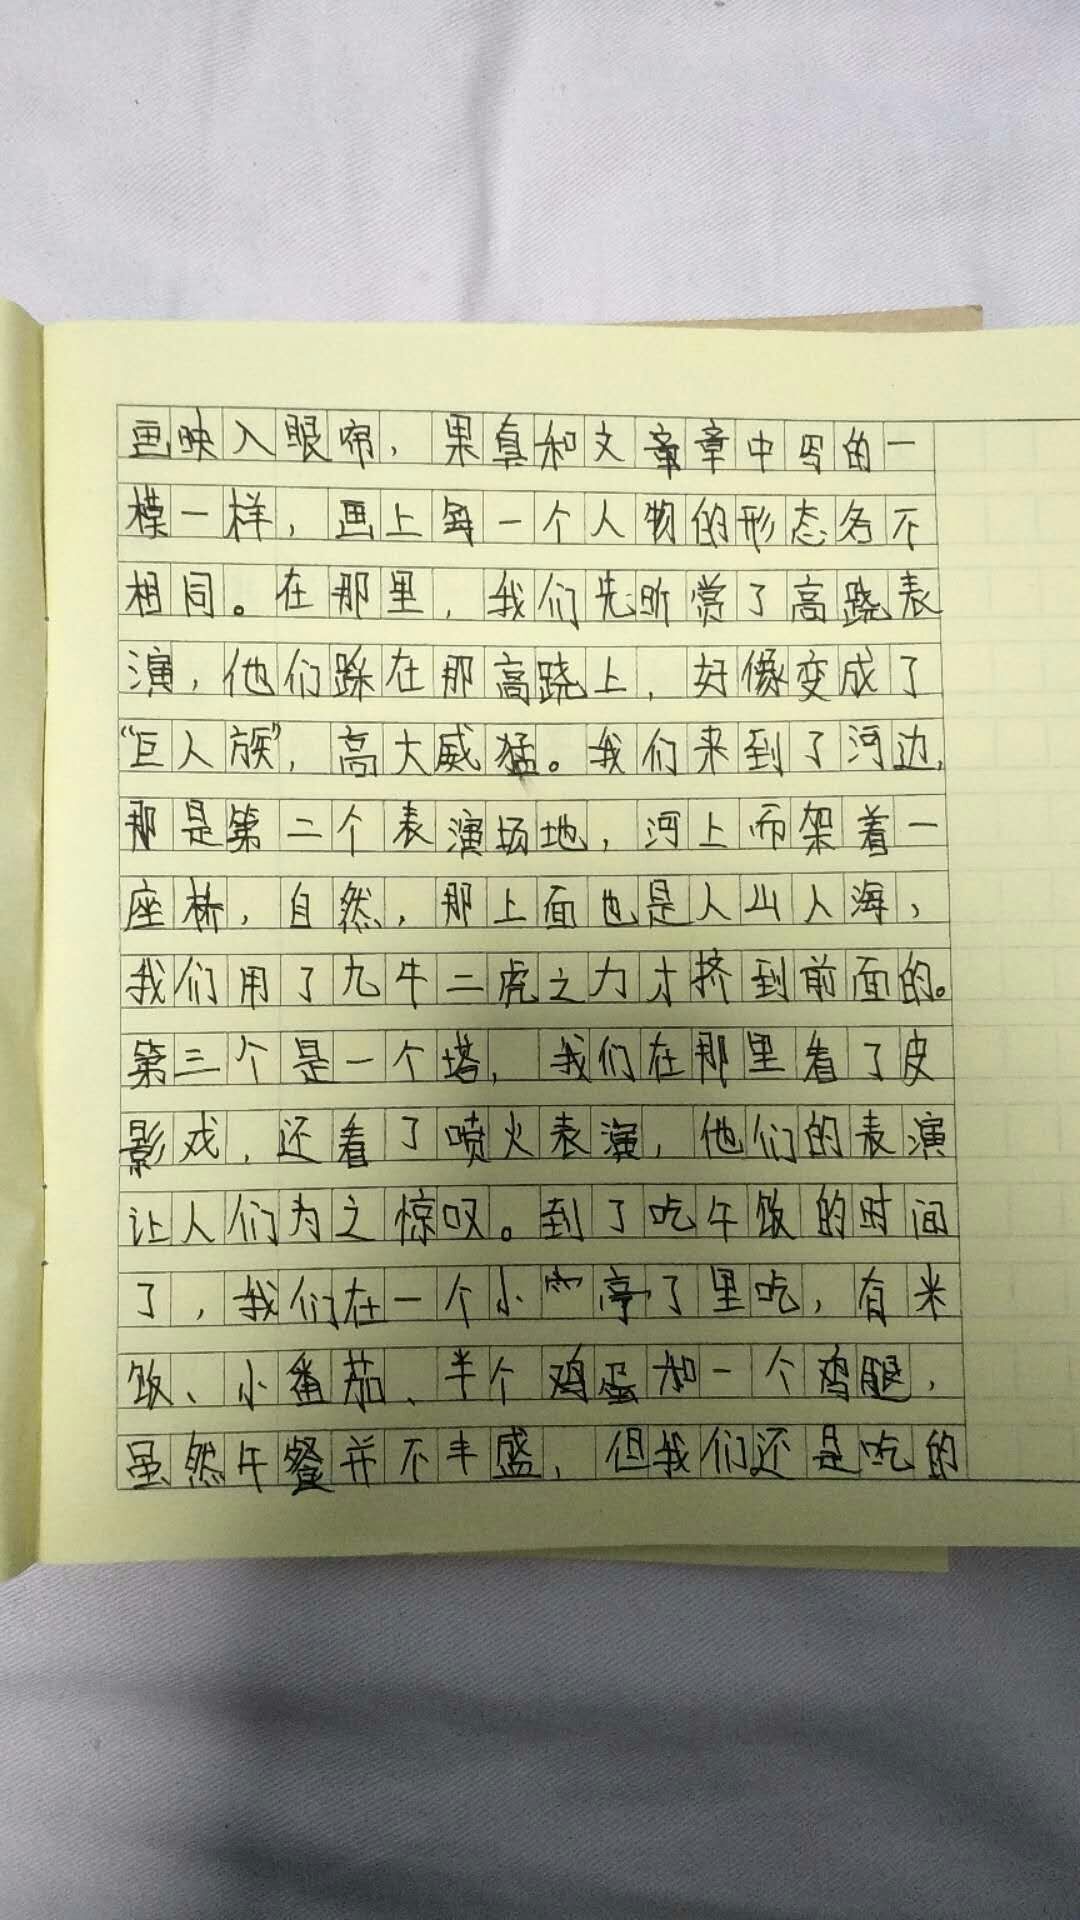 画映入眼帘，果真和文章章中写的一
模一样，画上每一个人物的形态各不
相同。在那里，我们先昕赏了高跷表
演，他们踩在那高跷上，好像变成了
“巨人族”，高大威猛。我们来到了河边，
那是第二个表演场地，河上而架着一
座桥，自然，那上面也是人山人海，
我们用了九牛二虎之力才挤到前面的。
第三个是一个塔，我们在那里看了皮
影戏，还看了喷火表演，他们的表演
让人们为之惊叹。到了吃午饭的时间
了，我们在一个小亭了里吃，有米
饭、小番茄、半个鸡蛋和一个鸡腿，
虽然午餐并不丰盛，但我们还是吃的